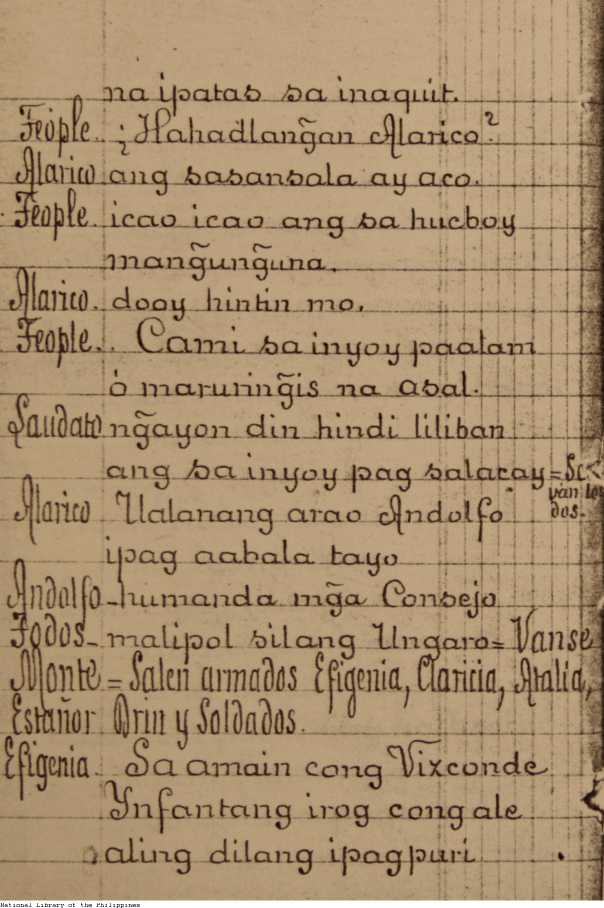 na ipatas sa inaquit.
Feople. ¿Hahadlang̃an Alarico?
Alarico ang sasansala ay aco.
Feople. icao icao ang sa hucboy
mang̃ung̃una.
Alarico. dooy hintin mo.
Feople. Cami sa inyoy paalam
ò maruring̃is na asal.
Laudato ng̃ayon din hindi liliban
ang sa inyoy pag salacay = Se
van los
dos.
Alarico Ualanang arao Andolfo
ipag aabala tayo
Andolfo - humanda mg̃a Consejo
Todos - malipol silang Ungaro = Vanse
Monte = Salen armados Efigenia, Claricia, Atalia,
Estañor Brin y Soldados.
Efigenia. Sa amain cong Vizconde
Ynfantang irog cong ale
aling dilang ipagpuri
National Library of the Philippines